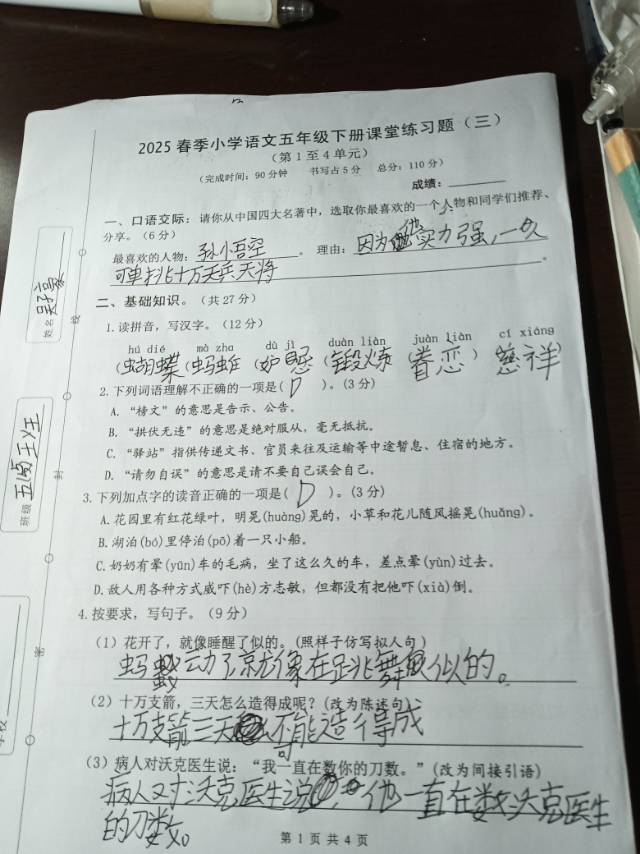 2025春季小学语文五年级下册课堂练习题（三）
（第1至4单元）
（完成时间：90分钟 书写占5分 总分：110分）
成绩：
一、口语交际：请你从中国四大名著中，选取你最喜欢的一个人物和同学们推荐、
分享。（6分）
最喜欢的人物：孙小悟空。理由：因为他实力强，一久
可单挑十万天兵天将。
二、基础知识。（共27分）
1.读拼音，写汉字。（12分）
hú dié mà zha dù jì duàn liàn juàn liàn cí xiáng
（蝴蝶（蚂蚱（妒忌（锻炼（眷恋）慈祥）
2.下列词语理解不正确的一项是（D）。（3分）
A.“榜文”的意思是告示、公告。
B.“拱伏无违”的意思是绝对服从，毫无抵抗。
C.“驿站”指供传递文书、官员来往及运输等中途暂息、住宿的地方。
D.“请勿自误”的意思是请不要自己误会自己。
3.下列加点字的读音正确的一项是（D）。（3分）
A.花园里有红花绿叶，明晃(huàng)晃的，小草和花儿随风摇晃(huǎng)。
B.湖泊(bó)里停泊(pō)着一只小船。
C.奶奶有晕(yūn)车的毛病，坐了这么久的车，差点晕(yùn)过去。
D.敌人用各种方式威吓(hè)方志敏，但都没有把他吓(xià)倒。
4.按要求，写句子。（9分）
（1）花开了，就像睡醒了似的。（照样子仿写拟人句）
蚂蚁动了就像在跳舞似的。
（2）十万支箭，三天怎么造得成呢？（改为陈述句）
十万支箭三天不可能造得成
（3）病人对沃克医生说：“我一直在数你的刀数。”（改为间接引语）
病人对沃克医生说，他一直在数沃克医生
的刀数。
第 1 页 共 4 页
姓名
班级
线
封
密